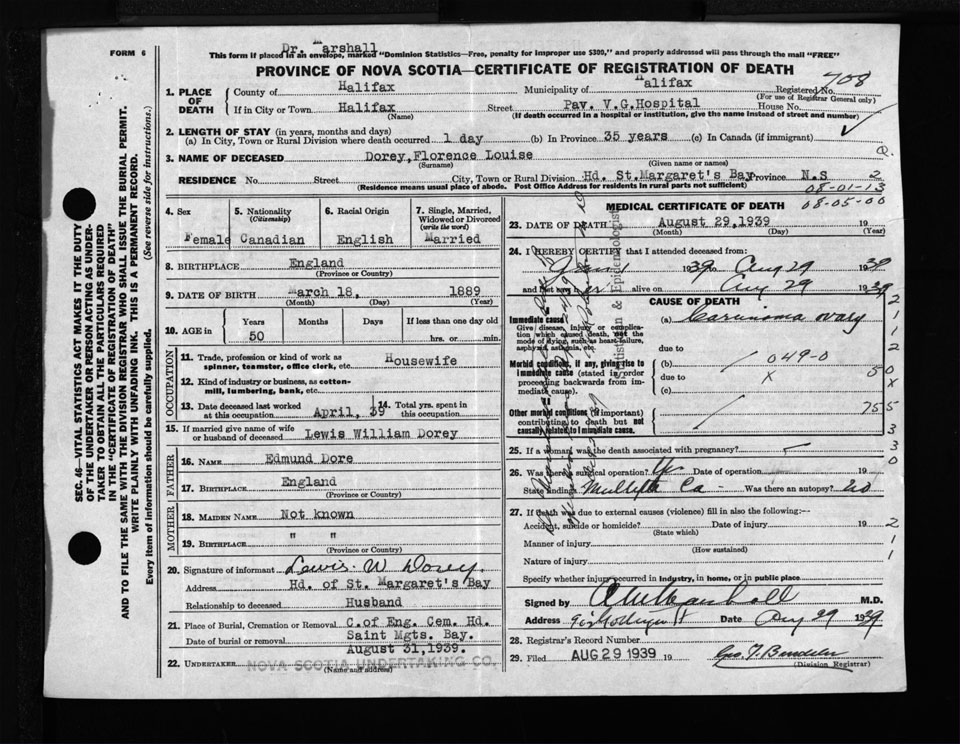 FORM 6
Dr. Marshall
This form if placed in an envelope, marked "Dominion Statistics—Free, penalty for improper use $300," and properly addressed will pass through the mail "FREE"
PROVINCE OF NOVA SCOTIA—CERTIFICATE OF REGISTRATION OF DEATH
708
1. PLACE OF DEATH
County of Halifax Municipality of Halifax Registered No.
(For use of Registrar General only)
If in City or Town Halifax Street Pav. V.G.Hospital House No.
(Name) (If death occurred in a hospital or institution, give the name instead of street and number)
2. LENGTH OF STAY (in years, months and days)
(a) In City, Town or Rural Division where death occurred 1 day (b) In Province 35 years (c) In Canada (if immigrant)
3. NAME OF DECEASED Dorey, Florence Louise
(Surname) (Given name or names)
RESIDENCE No. Street City, Town or Rural Division Hd. St.Margaret's Bay Province N.S 2
(Residence means usual place of abode. Post Office Address for residents in rural parts not sufficient)
08-01-13
08-05-00
4. Sex Female
5. Nationality (Citizenship) Canadian
6. Racial Origin English
7. Single, Married, Widowed or Divorced (write the word) Married
8. BIRTHPLACE England
(Province or Country)
9. DATE OF BIRTH March 18, 1889
(Month) (Day) (Year)
10. AGE in Years Months Days If less than one day old
50 hrs. or min.
OCCUPATION
11. Trade, profession or kind of work as spinner, teamster, office clerk, etc. Housewife
12. Kind of industry or business, as cotton-mill, lumbering, bank, etc.
13. Date deceased last worked at this occupation April, 39
14. Total yrs. spent in this occupation
15. If married give name of wife or husband of deceased Lewis William Dorey
FATHER
16. NAME Edmund Dore
17. BIRTHPLACE England
(Province or Country)
MOTHER
18. MAIDEN NAME Not known
19. BIRTHPLACE " "
(Province or Country)
20. Signature of informant Lewis W Dorey
Address Hd. of St. Margaret's Bay
Relationship to deceased Husband
21. Place of Burial, Cremation or Removal C.of Eng. Cem. Hd. Saint Mgts. Bay.
Date of burial or removal August 31,1939.
22. UNDERTAKER NOVA SCOTIA UNDERTAKING CO.
(Name and address)
MEDICAL CERTIFICATE OF DEATH
23. DATE OF DEATH August 29,1939 19
(Month) (Day) (Year)
24. I HEREBY CERTIFY that I attended deceased from:
1939 to Aug 29 1939
and last saw her alive on Aug 29 1939
CAUSE OF DEATH
Immediate cause (a) Carcinoma ovary
Give disease, injury or complication which caused death, not the mode of dying, such as heart-failure, asphyxia, asthenia, etc.
due to
Morbid conditions, if any, giving rise to immediate cause (stated in order proceeding backwards from immediate cause).
(b) 049-0
due to X
(c)
Other morbid conditions (if important) contributing to death but not causally related to immediate cause.
755
25. If a woman, was the death associated with pregnancy?
26. Was there a surgical operation? Date of operation 19
State findings Multiple Ca Was there an autopsy? no
27. If death was due to external causes (violence) fill in also the following:—
Accident, suicide or homicide? Date of injury 19
(State which)
Manner of injury
(How sustained)
Nature of injury
Specify whether injury occurred in industry, in home, or in public place
Signed by Marshall M.D.
Address Date Aug 29 1939
28. Registrar's Record Number
29. Filed AUG 29 1939 19
(Division Registrar)
SEC. 46—VITAL STATISTICS ACT MAKES IT THE DUTY
OF THE UNDERTAKER OR PERSON ACTING AS UNDER-
TAKER TO OBTAIN ALL THE PARTICULARS REQUIRED
IN THE "CERTIFICATE OF REGISTRATION OF DEATH"
AND TO FILE THE SAME WITH THE DIVISION REGISTRAR WHO SHALL ISSUE THE BURIAL PERMIT.
WRITE PLAINLY WITH UNFADING INK. THIS IS A PERMANENT RECORD.
Every item of information should be carefully supplied. (See reverse side for instructions.)